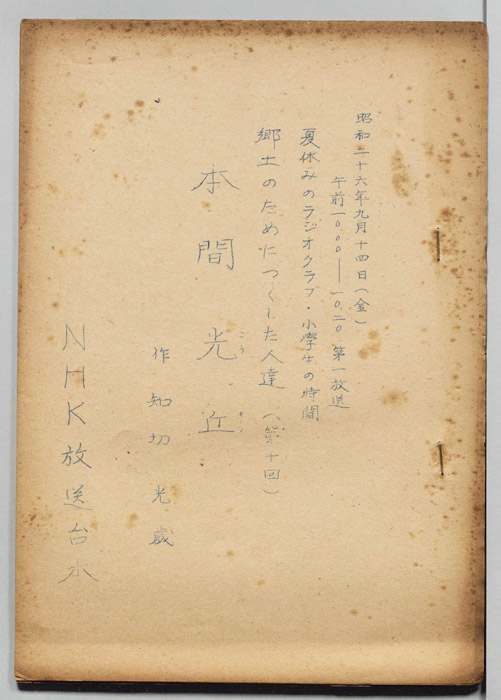 昭和二十六年九月十四日(金)
午前一〇.〇〇——一〇.二〇 第一放送
夏休みのラジオクラブ・小學生の時間
郷土のためにつくした人達(第十回)
本間光丘
こう
作 知切光歳
NHK放送台本